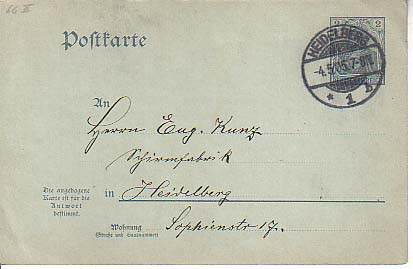 66 II
Postkarte
2
HEIDELBERG
* 1 b
An
Herrn Eug. Kunz
Schirmfabrik
in Heidelberg
Die angebogene
Karte ist für die
Antwort
bestimmt.
Wohnung
(Straße und Hausnummer)
Sophienstr 17.